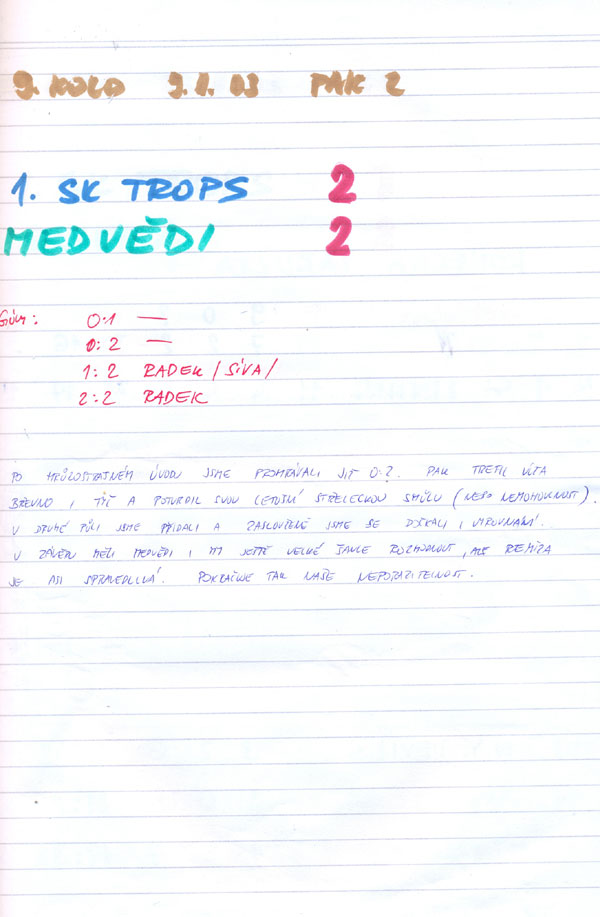 9. KOLO 9.11.03 PAK 2
1. SK TROPS 2
MEDVĚDI 2
Góly: 0:1 —
0:2 —
1:2 RADEK /SÍVA/
2:2 RADEK
PO HRŮZOSTRAŠNÉM ÚVODU JSME PROHRÁVALI JIŽ 0:2. PAK TREFIL VÍŤA
BŘEVNO I TYČ A POTVRDIL SVOU LETOŠNÍ STŘELECKOU SMŮLU (NEBO NEMOHOUCNOST).
V DRUHÉ PŮLI JSME PŘIDALI A ZASLOUŽENĚ JSME SE DOČKALI I VYROVNÁNÍ.
V ZÁVĚRU MĚLI MEDVĚDI I MY JEŠTĚ VELKÉ ŠANCE ROZHODNOUT, ALE REMÍZA
JE ASI SPRAVEDLIVÁ. POKRAČUJE TAK NAŠE NEPORAZITELNOST.